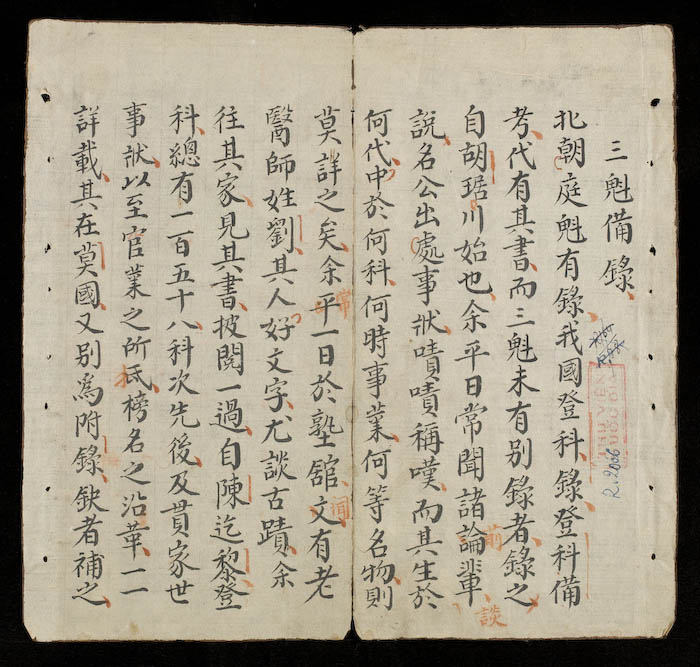 三魁備錄
北朝庭魁有錄我國登科錄登科備
考代有其書而三魁未有別錄者錄之
自胡琚川始也余平日常聞諸論輩
前
談
說名公出處事狀嘖嘖稱嘆而其生於
何代中於何科何時事業何等名物則
莫詳之矣余平一日於塾舘文有老
常
聞
醫師姓劉其人好文字尤談古蹟余
往其家見其書披閱一過自陳迄黎登
科總有一百五十八科次先後及貫家世
事狀以至官業之所底榜名之沿革一一
詳載其在莫國又別爲附錄缺者補之
R.2006